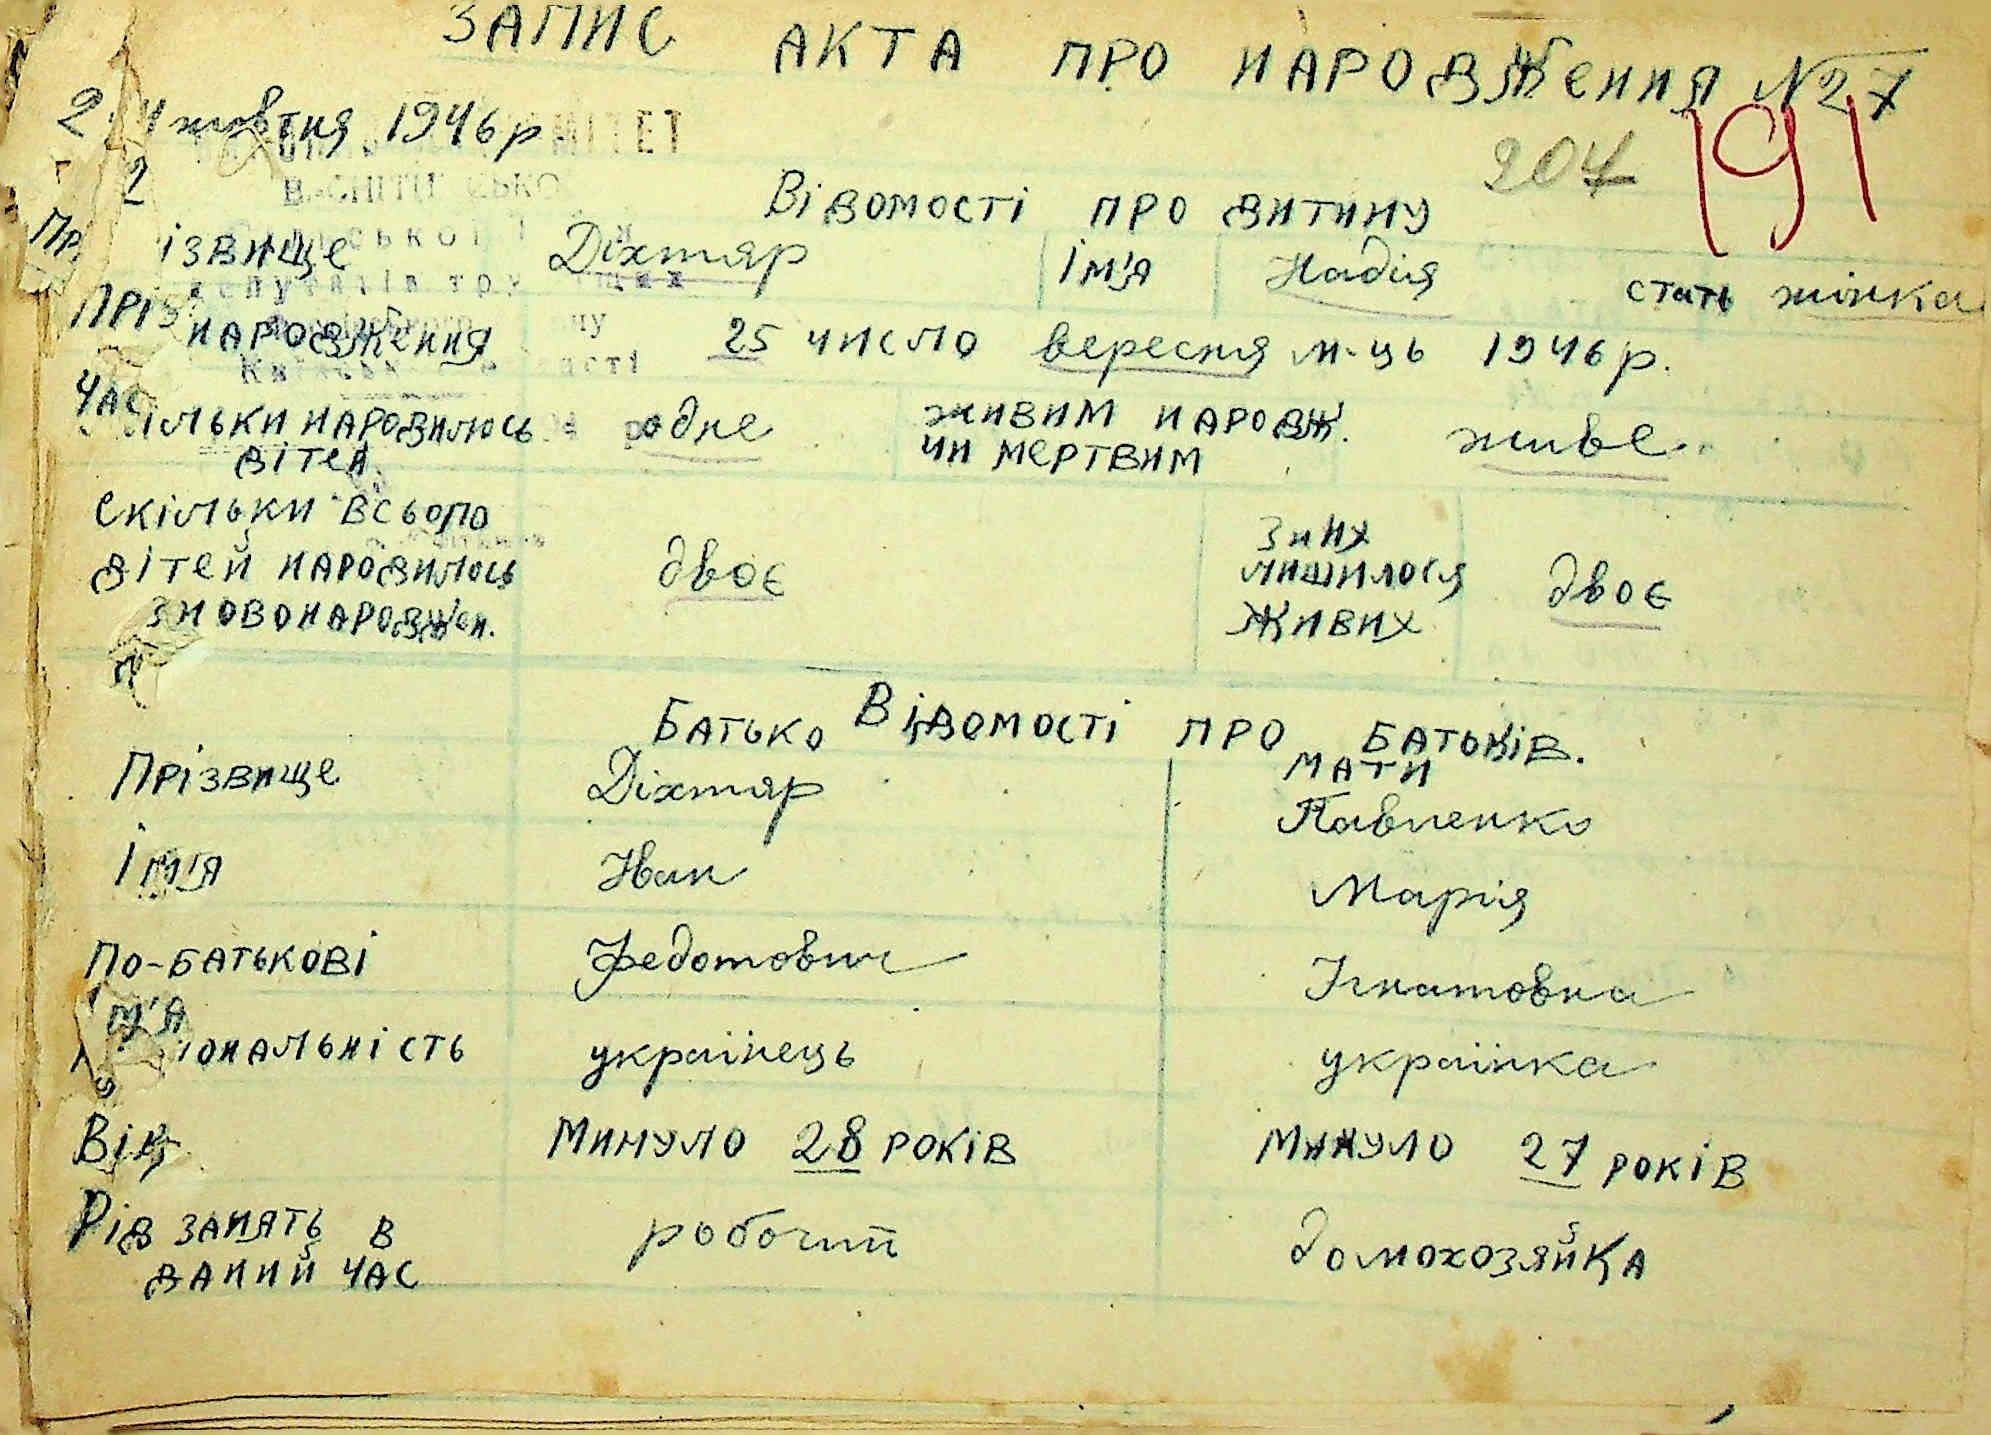 ЗАПИС АКТА ПРО НАРОДЖЕННЯ №27
жовтня 1946 р
204 191
Відомості про дитину
ізвище Діхтяр Ім'я Надія стать жінка
народження 25 число вересня м-ць 1946 р.
Час
ільки народилось одне живим народж. живе
дітей чи мертвим
Скільки всього З них
дітей народилось двоє лишилося двоє
з новонароджен. живих
Відомості про батьків.
Батько Мати
Прізвище Діхтяр Павленко
Ім'я Іван Марія
По-батькові Федотович Ігнатовна
м'я
іональність українець українка
Вік минуло 28 років минуло 27 років
Рід занять в робочий домохозяйка
даний час